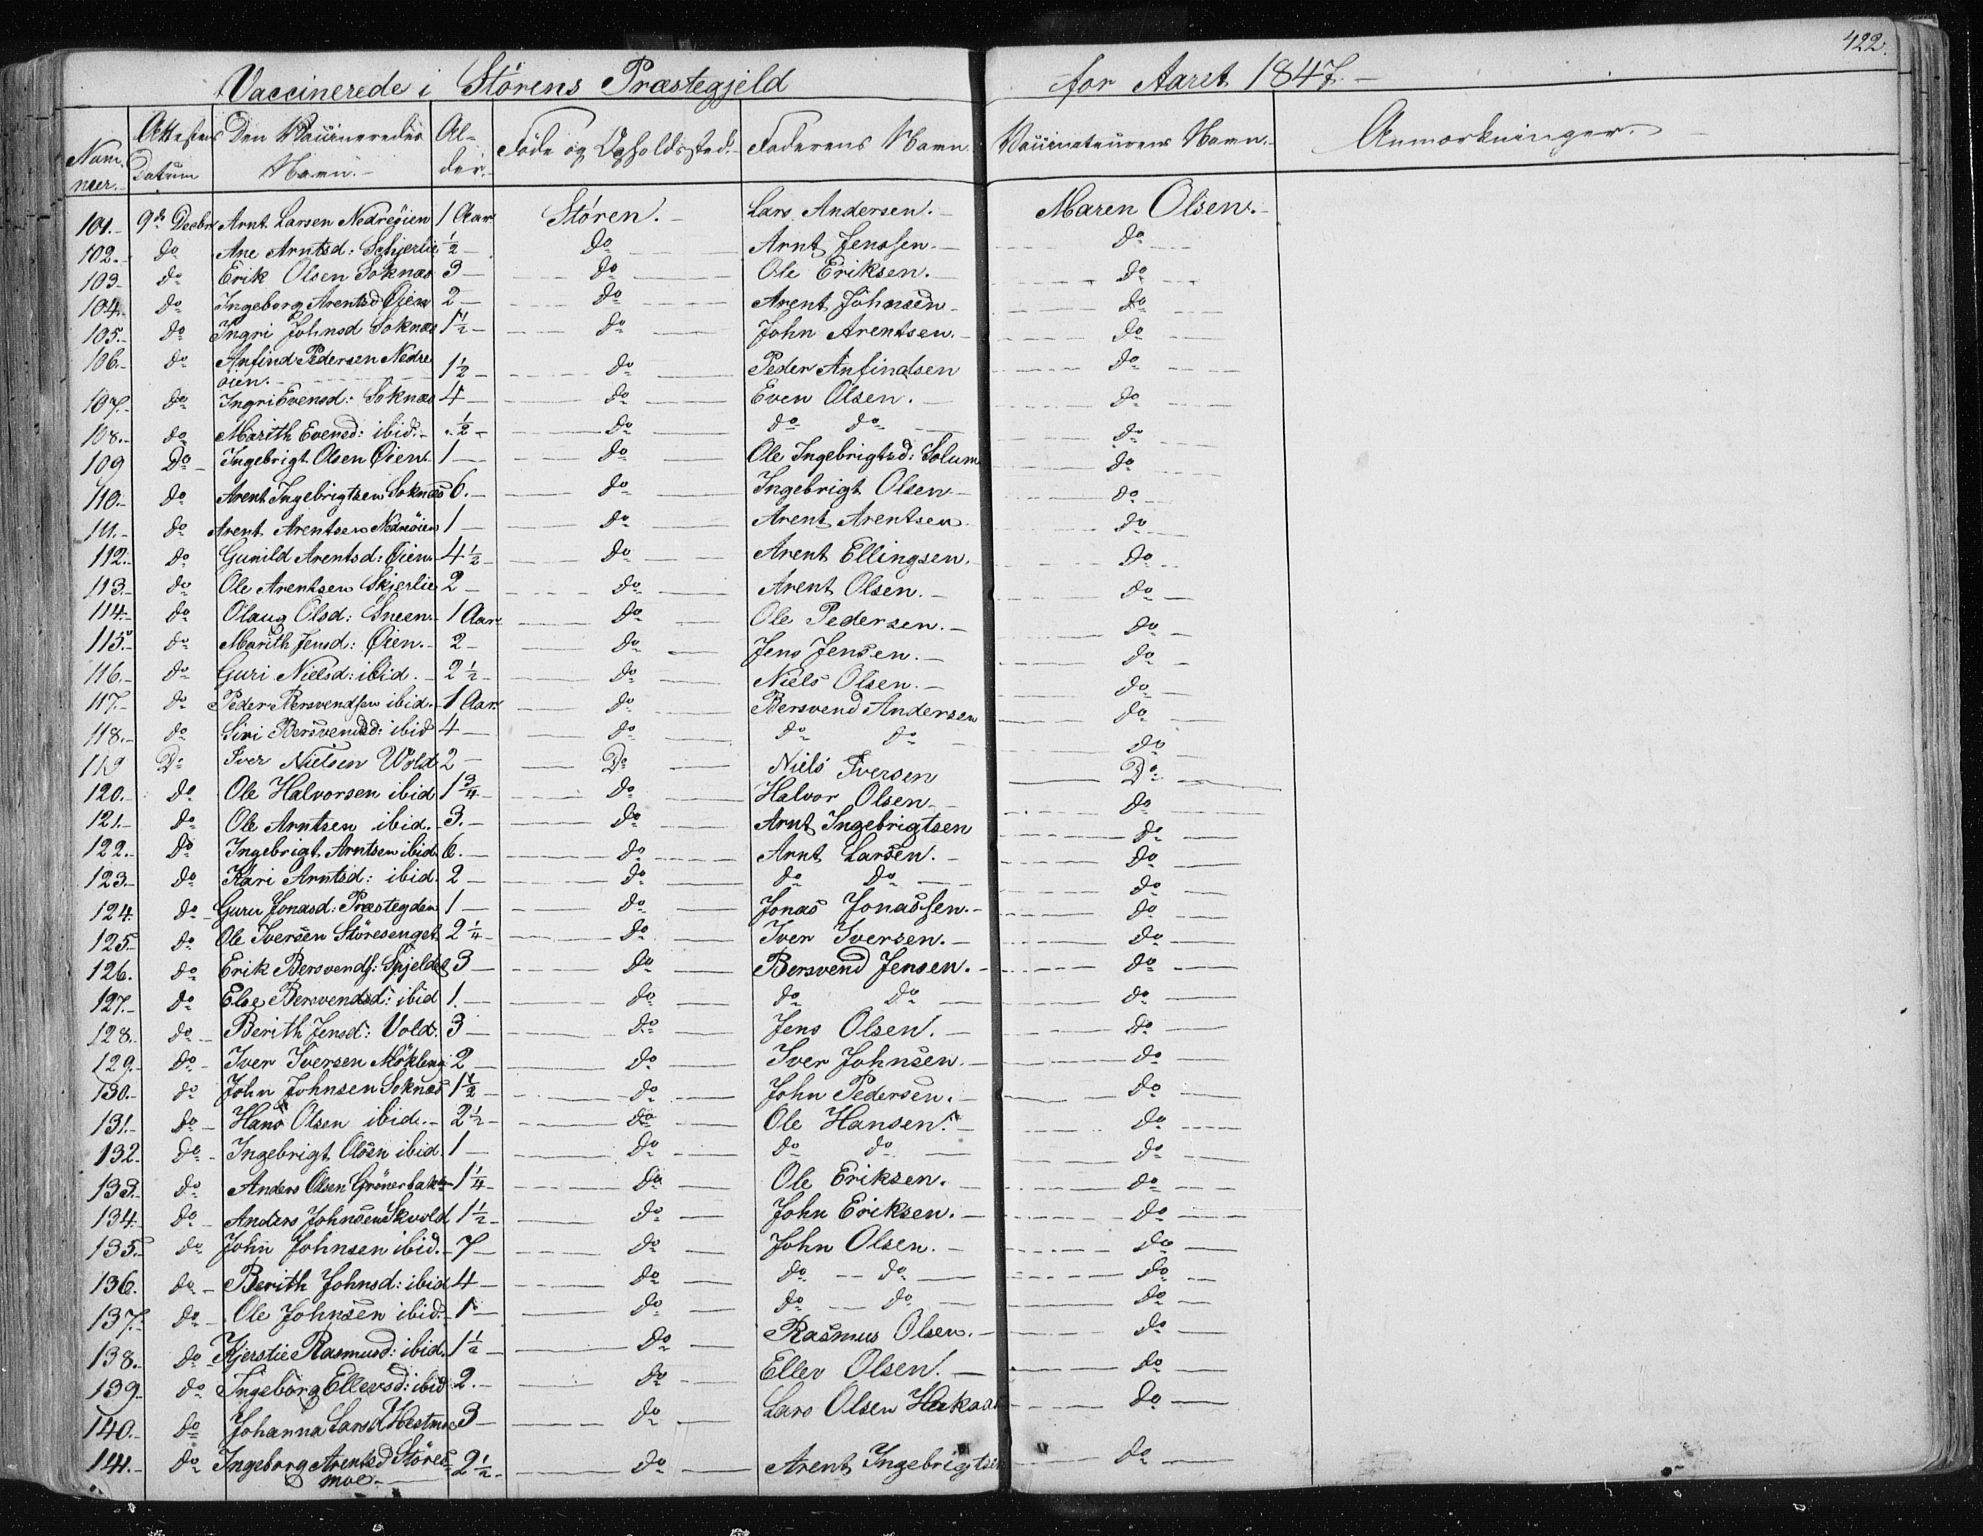 422.
Vaccinerede i Störens Præstegjeld for Aaret 1847. –
Nummer. Attestens Datum Den Vaccineredes Navn. Alder. Föde og Opholdssted. Faderens Navn Vaccinateurens Navn. Anmærkninger.
101. 9de Decbr Arnt Larsen Nedreöien 1 Aar Stören. Lars Andersen. Maren Olsen.
102. do Ane Arntsd: Schjerlie ½ do Arnt Jenssen. do
103 do Erik Olsen Soknæs 3 do Ole Eriksen. do
104. do Ingeborg Arentsd Øien 2 do Arent Johnsen do
105. do Ingri Johnsd Soknæs 1½ do John Arentsen. do
106. do Anfind Pedersen Nedre
öien. 1½ do Peder Anfindsen do
107. do Ingri Evensd: Soknæs 4 do Even Olsen. do
108. do Marith Evensd: ibid. ½ do do do do
109 Do Ingebrigt Olsen Øien 1 do Ole Ingebrigtsd: Solum do
110. do Arent Ingebrigtsen Soknæs 6. do Ingebrigt Olsen do
111. do Arent Arentsen Nedreöien 1 do Arent Arentsen. do
112. do Gunild Arentsd: Øien 4½ do Arent Ellingsen. do
113. do Ole Arentsen Skjerlie 2 do Arent Olsen. do
114. do Olaug Olsd: Sneen. 1 Aar do Ole Pedersen. do
115. do Marith Jensd: Øien. 2 do Jens Jensen. do
116. do Guri Nielsd: ibid. 2½ do Niels Olsen. do
117. do Peder Bersvendsen ibid. 1 Aar do Bersvend Andersen do
118. do Siri Bersvendsd: ibid 4 do do do do
119 Do Iver Nielsen Wold 2 Do Niels Iversen Do
120. do Ole Halvorsen ibid 1¾ do Halvor Olsen. do
121. do Ole Arntsen ibid. 3. do Arnt Ingebrigtsen do
122. do Ingebrigt Arntsen ibid 6. do Arnt Larsen. do
123. do Kari Arntsd: ibid. 2 do do do do
124. do Guru Jonasd: Præstegden 1 do Jonas Jonassen. do
125. do Ole Iversen Störesenget 2¼ do Iver Iversen. do
126. do Erik Bersvends: Spjeldet 3 do Bersvend Jensen. do
127. do Else Bersvendsd: ibid 1. do do do do
128. do Berith Jensd: Vold. 3 do Jens Olsen. do
129. do Iver Iversen 2 do Iver Johnsen. do
130. do John Johnsen Soknæs 1½ do John Pedersen. do
131. do Hans Olsen ibid. 2½ do Ole Hansen. do
132. do Ingebrigt Olsen ibid 1 do do do do
133. do Anders Olsen Grönerbakn 1¼ do Ole Eriksen. do
134. do Anders Johnsen Skvold 1½ do John Eriksen. do
135. do John Johnsen ibid. 7 do John Olsen. do
136. do Berith Johnsd: ibid 4 do do do do
137. do Ole Johnsen ibid. 1 do do do do
138. do Kjerstie Rasmusd: ibid. 1½ do Rasmus Olsen. do
139. do Ingeborg Ellevsd: ibid 2. do Ellev Olsen. do
140. do Johanna Larsd Hestmoe 3 do Lars Olsen Hakaas do
141. do Ingeborg Arentsd Störes
moe. 2½ do Arent Ingebrigtsen do